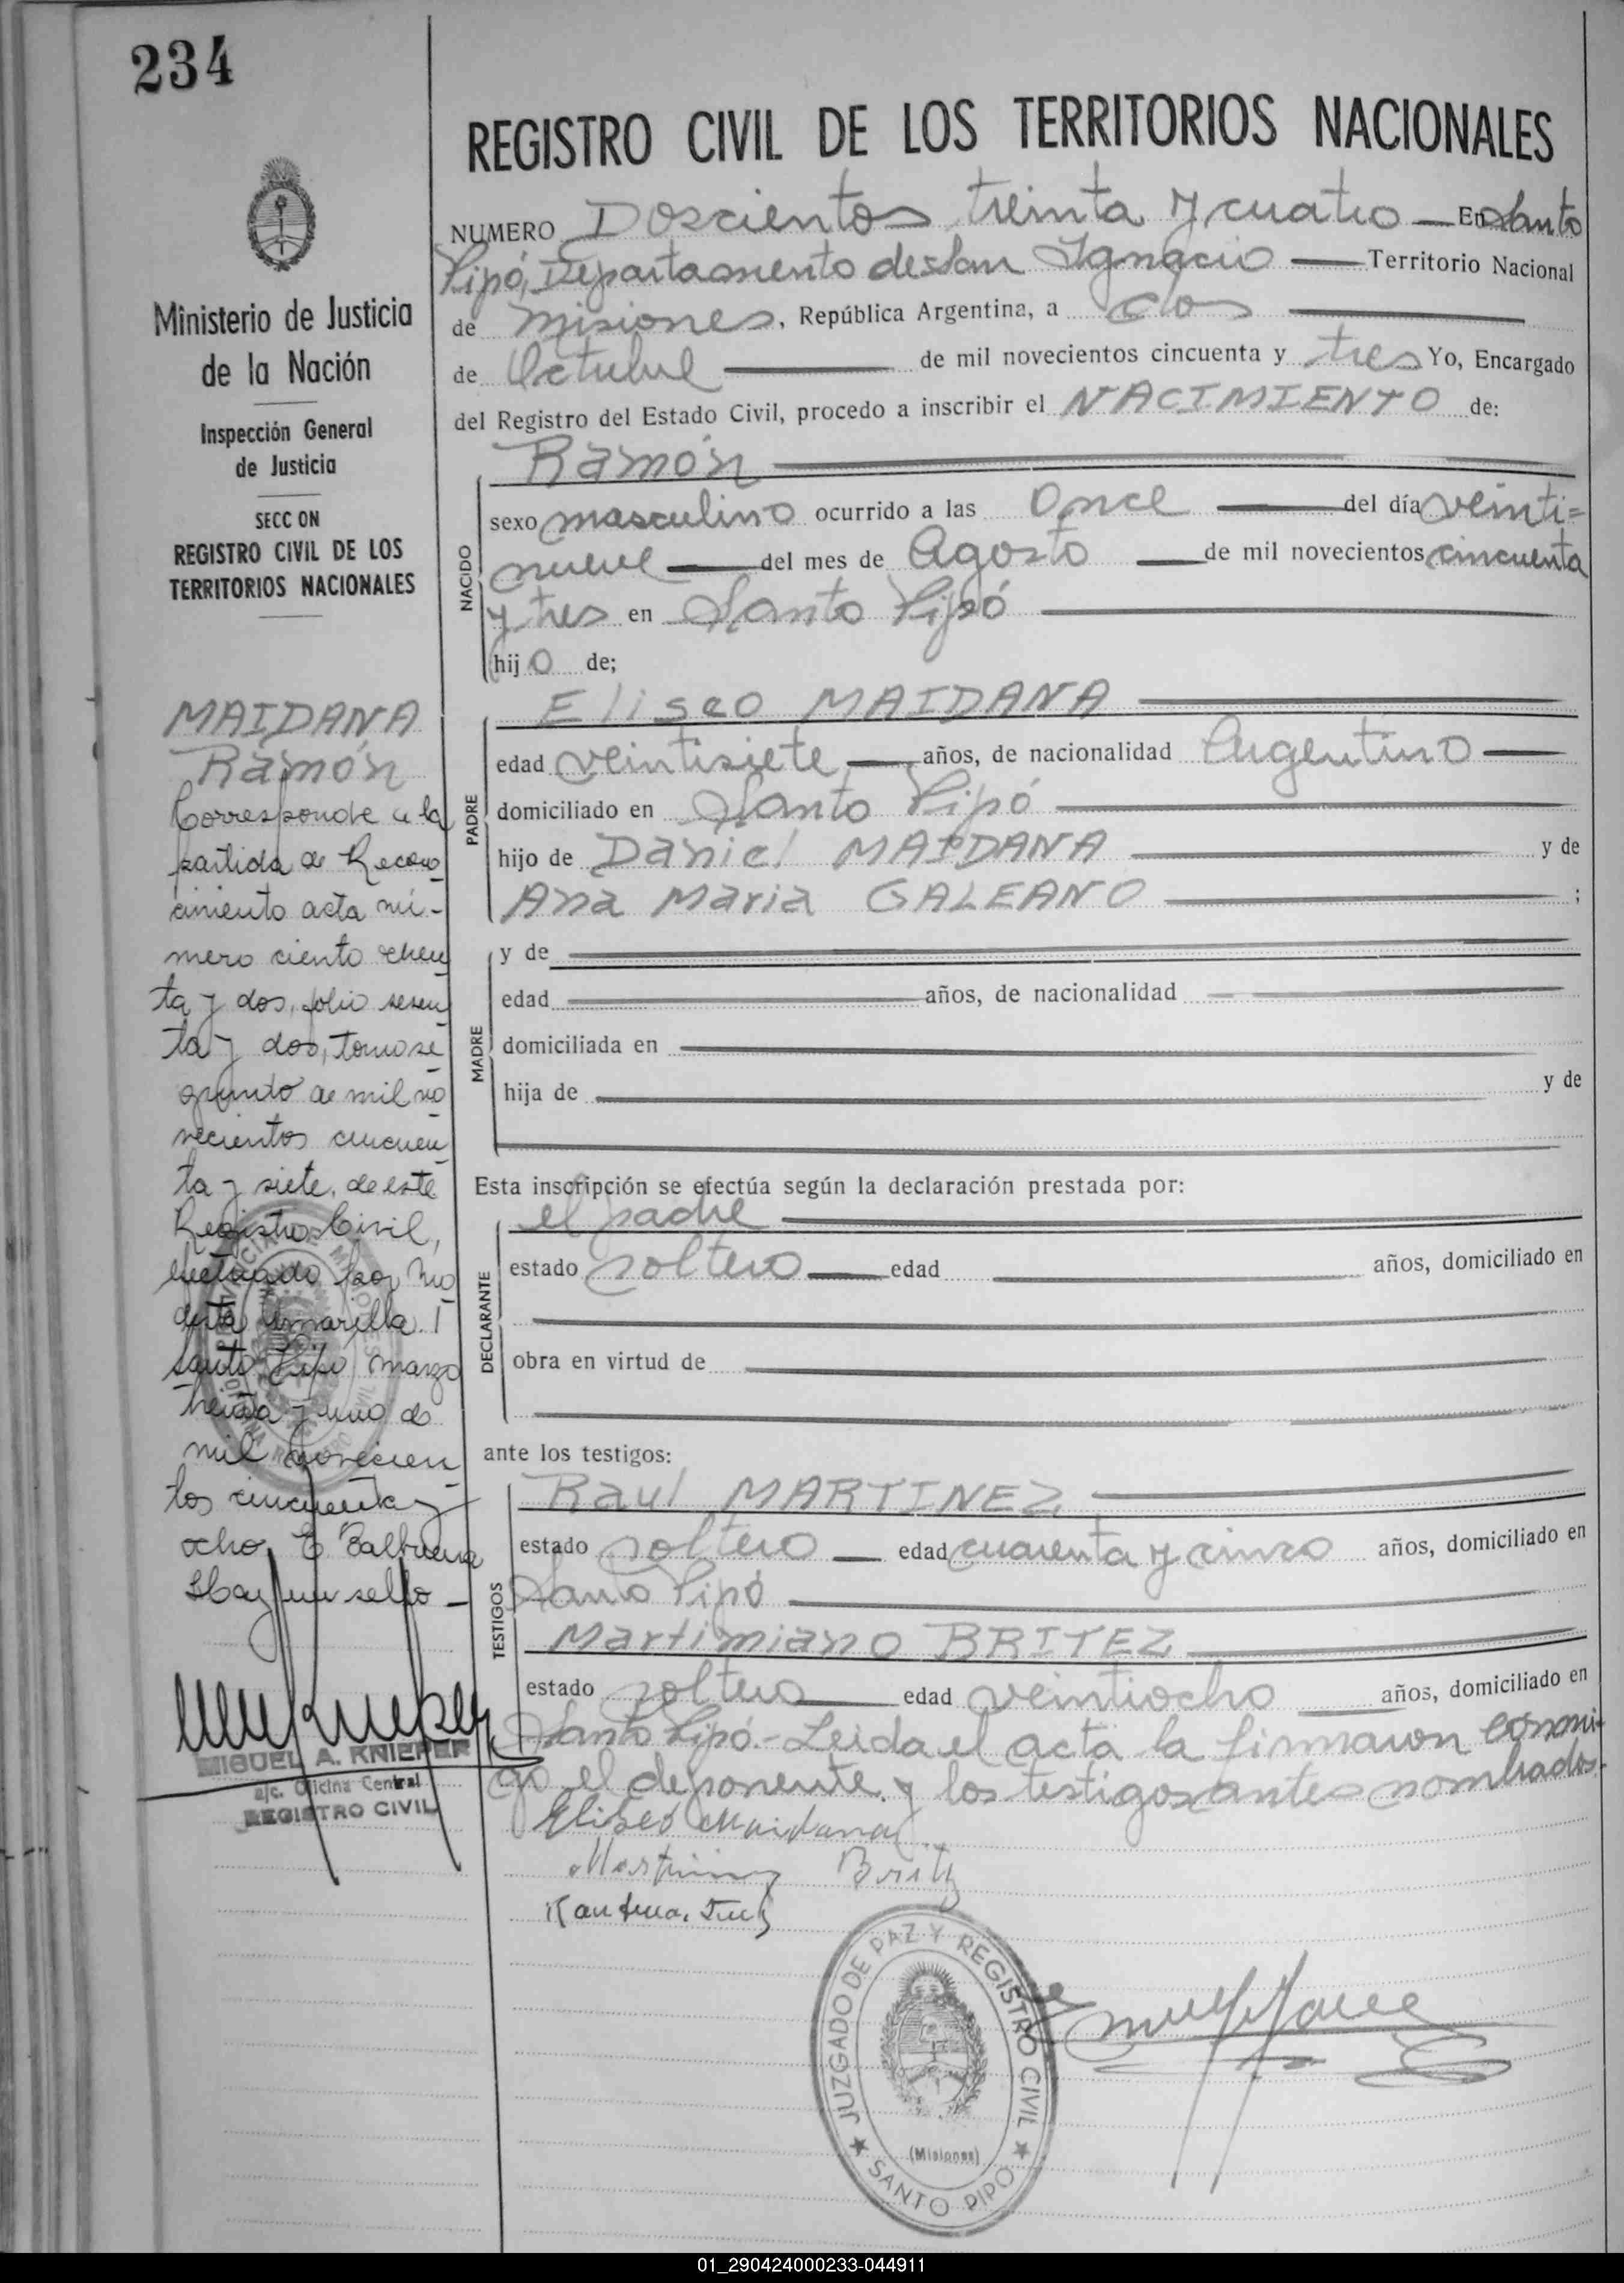 234
REGISTRO CIVIL DE LOS TERRITORIOS NACIONALES
NUMERO Doscientos treinta y cuatro — En Santo
Pipó, Departamento de San Ignacio — Territorio Nacional
de Misiones, República Argentina, a dos
de Octubre de mil novecientos cincuenta y tres Yo, Encargado
del Registro del Estado Civil, procedo a inscribir el NACIMIENTO de:
Ramón
NACIDO
sexo masculino ocurrido a las Once del día veinti=
nueve del mes de Agosto de mil novecientos cincuenta
y tres en Santo Pipó
hijo de;
PADRE
Eliseo MAIDANA
edad veintisiete años, de nacionalidad Argentino
domiciliado en Santo Pipó
hijo de Daniel MAIDANA y de
Ana Maria GALEANO ;
MADRE
y de
edad años, de nacionalidad
domiciliada en
hija de y de
Esta inscripción se efectúa según la declaración prestada por:
DECLARANTE
el padre
estado soltero edad años, domiciliado en
obra en virtud de
ante los testigos:
TESTIGOS
Raul MARTINEZ
estado soltero edad cuarenta y cinco años, domiciliado en
Santo Pipó
Martimiano BRITEZ
estado soltero edad veintiocho años, domiciliado en
Santo Pipó.- Leida el acta la firmaron conmi-
go el deponente y los testigos antes nombrados.
Eliseo Maidana
Britez
JUZGADO DE PAZ Y REGISTRO CIVIL
(Misiones)
SANTO PIPO
Ministerio de Justicia
de la Nación
Inspección General
de Justicia
SECCON
REGISTRO CIVIL DE LOS
TERRITORIOS NACIONALES
MAIDANA
Ramón
Corresponde a la
partida de Recono
cimiento acta nú-
mero ciento ochen
ta y dos, folio sesen
ta y dos, tomo se
gundo de mil no
vecientos cincuen
ta y siete, de este
Registro Civil,
efectuado por Mo
desta Amarilla.
Santo Pipó marzo
treinta y uno de
mil novecien
tos cincuenta y
ocho. E. Balbuena
Hay un sello -
MIGUEL A. KNIEPER
a/c. Oficina Central
REGISTRO CIVIL
01_290424000233-044911